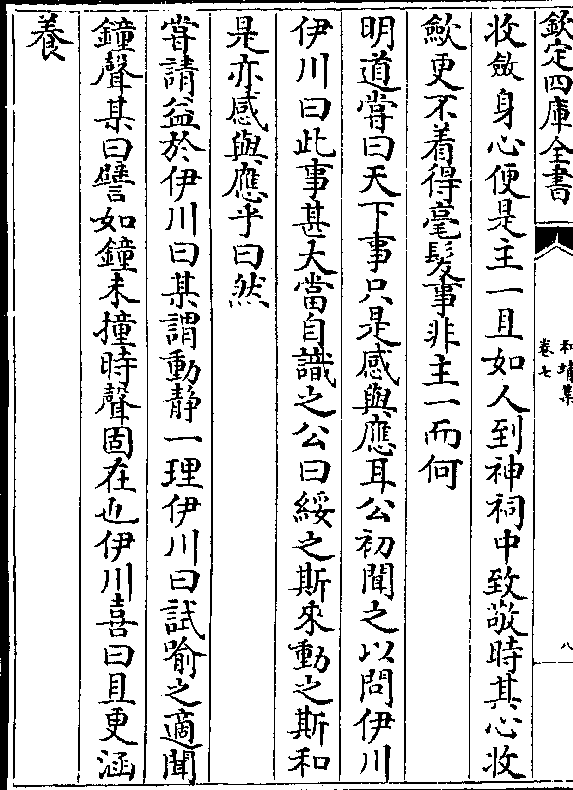 欽定四庫全書
和靖集
卷七
八
收斂身心便是主一且如人到神祠中致敬時其心收
斂更不着得毫髮事非主一而何
明道嘗曰天下事只是感與應耳公初聞之以問伊川
伊川曰此事甚大當自識之公曰綏之斯來動之斯和
是亦感與應乎曰然
嘗請益於伊川曰某謂動静一理伊川曰試喻之適聞
鐘聲某曰譬如鐘未撞時聲固在也伊川喜曰且更涵
養